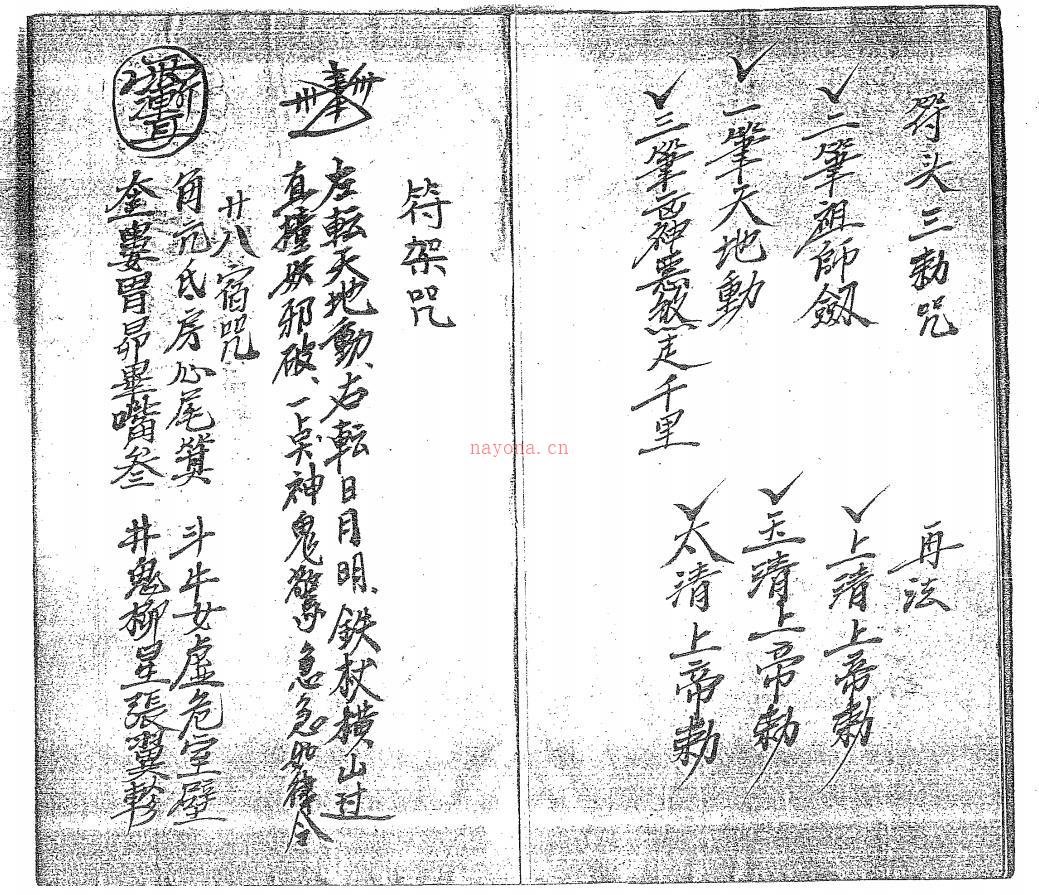 符头三勅咒
二筆祖師劔
一筆天地動
三筆凶神惡煞走千里
再法
上清上帝勅
玉清上帝勅
太清上帝勅
符架咒
左転天地動、右転日月明、鉄杖横山过
直撞妖邪破、一点神鬼驚急急如律令
廿八宿咒
角亢氐房心尾箕 斗牛女虛危室壁
奎婁胃昴畢嘴叁 井鬼柳星張翼軫
nayona.cn